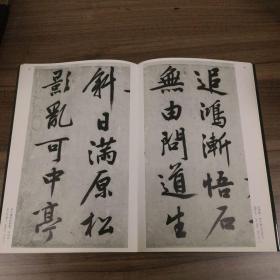 追鴻漸悟石
無由問道生
斜日滿原松
影亂可中亭